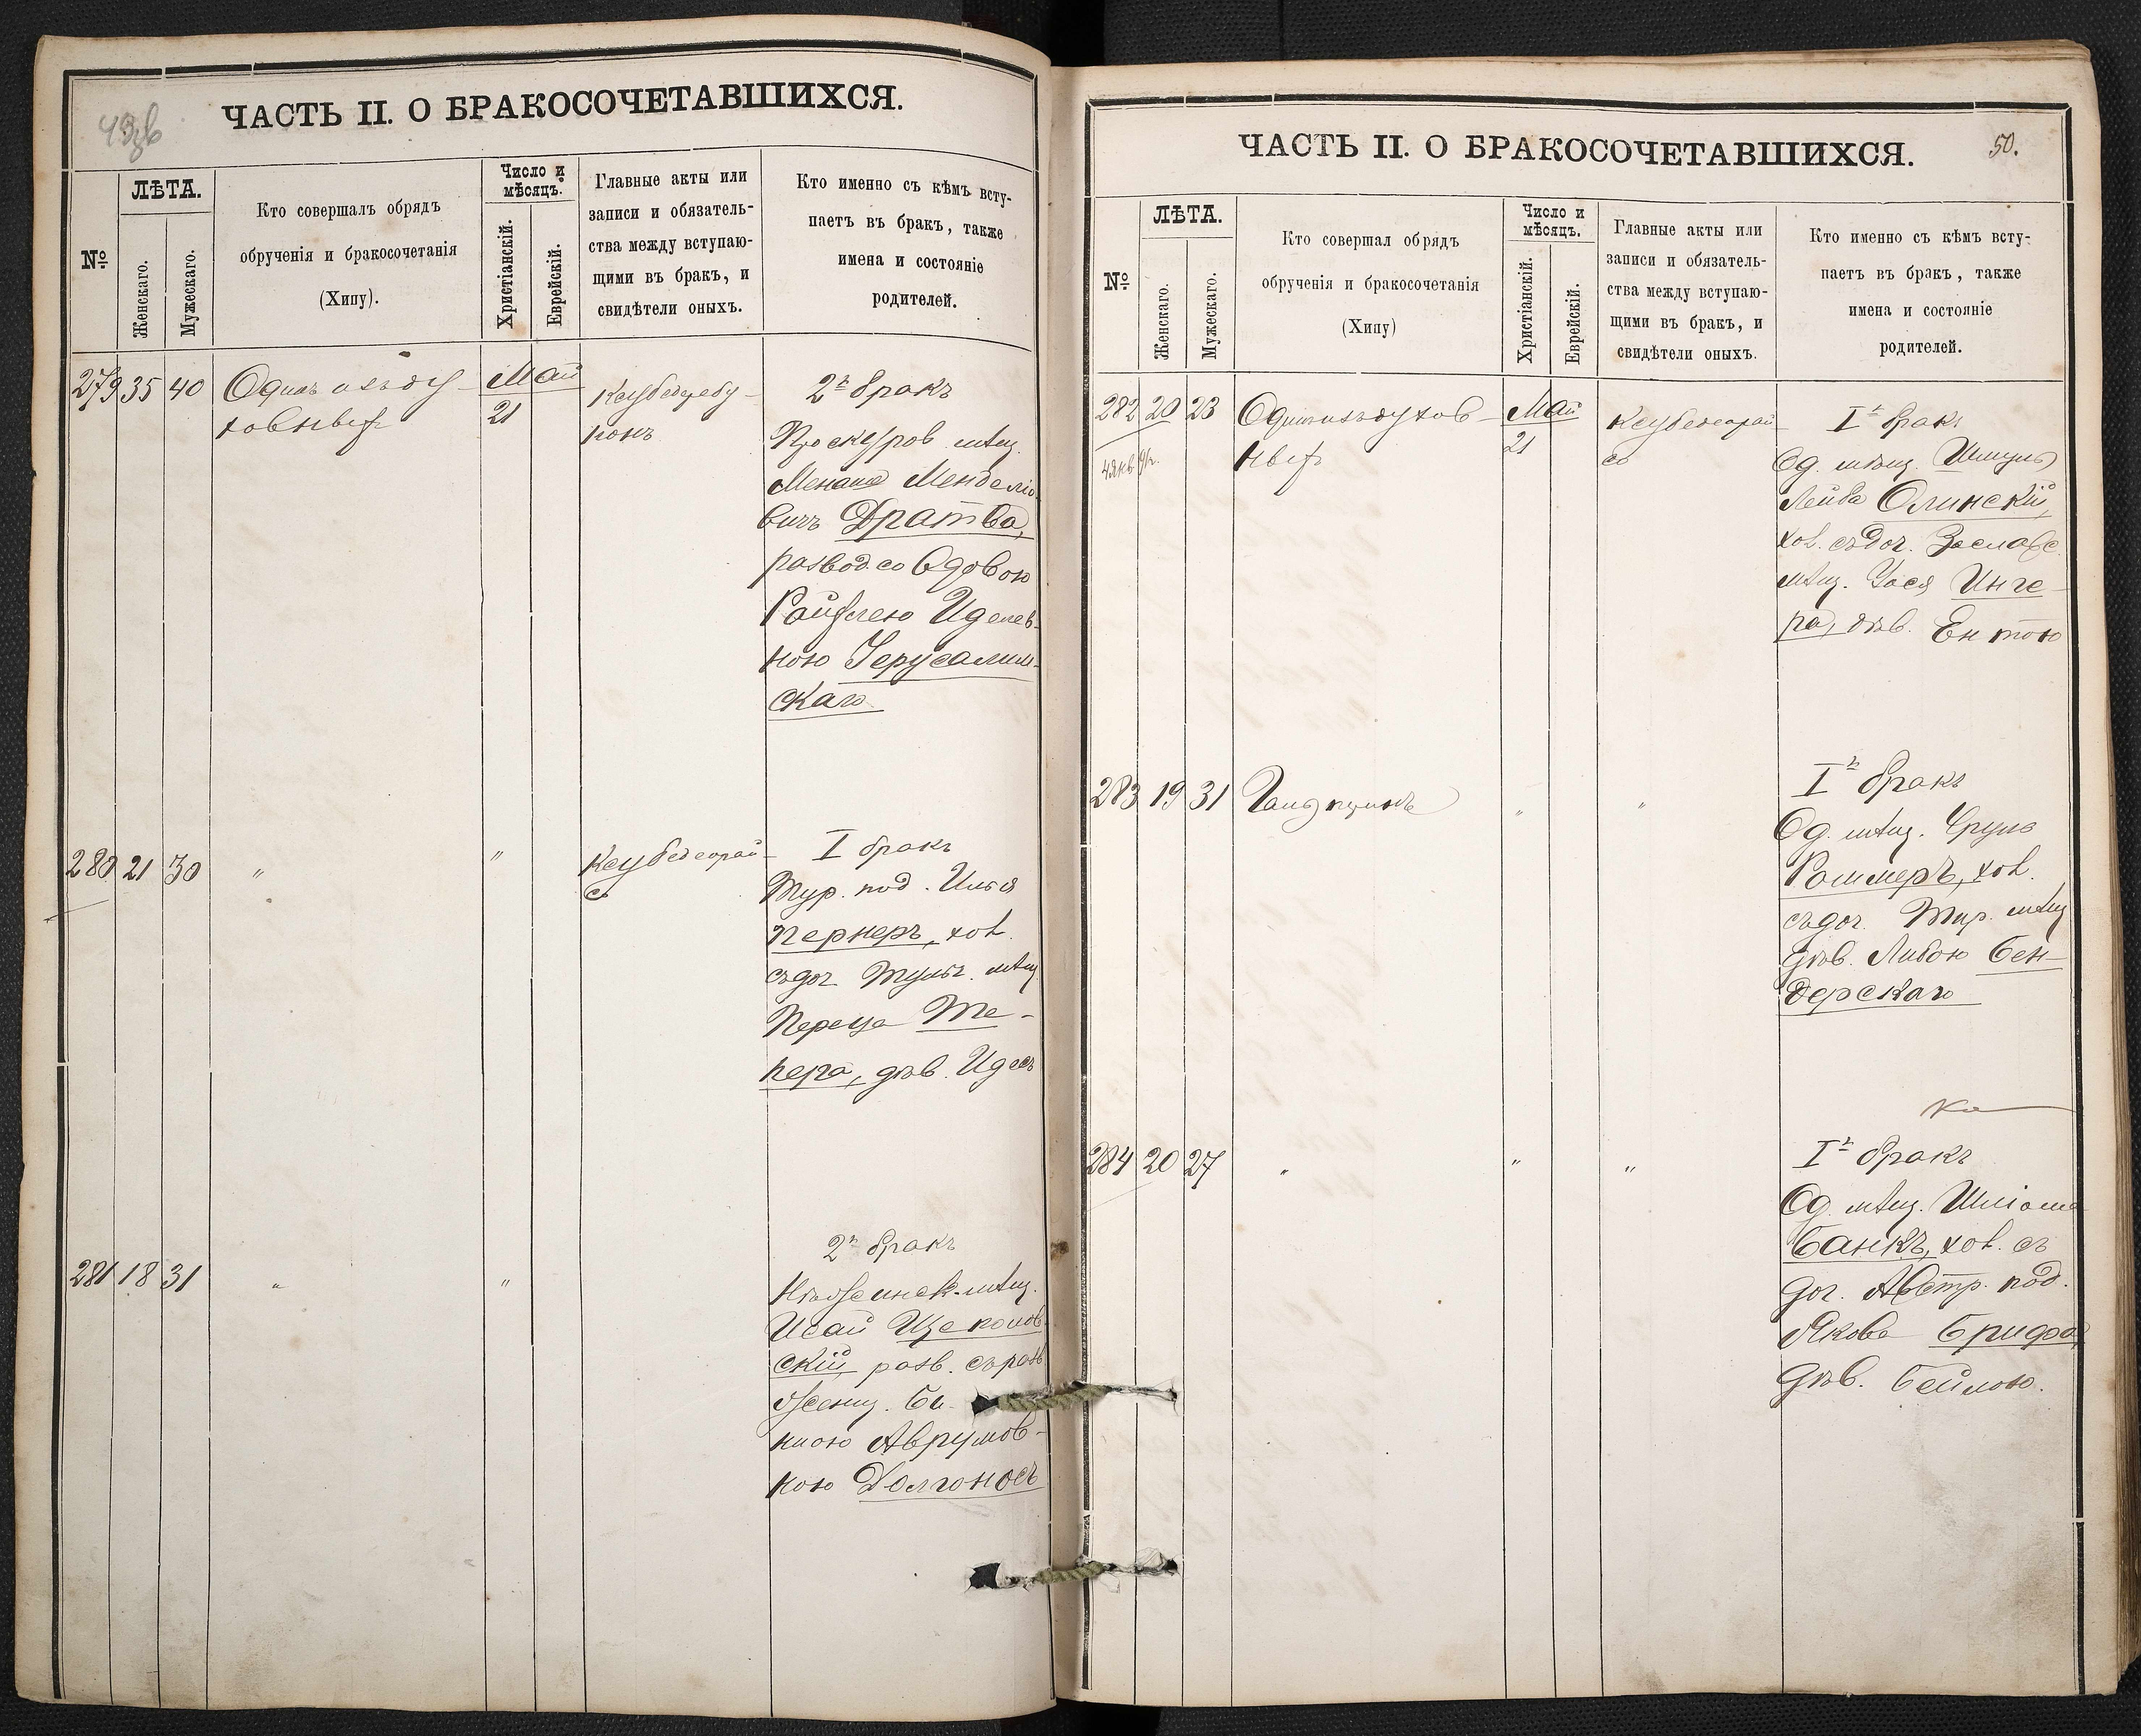 ЧАСТЬ II. О БРАКОСОЧЕТАВШИХСЯ.
№
ЛѢТА.
Женскаго.
Мужескаго.
Кто совершалъ обрядъ
обрученія и бракосочетанія
(Хипу).
Число и
мѣсяцъ.
Христіанскій.
Еврейскій.
Главные акты или
записи и обязатель-
ства между вступаю-
щими въ бракъ, и
свидѣтели оныхъ.
Кто именно съ кѣмъ всту-
паетъ въ бракъ, также
имена и состояніе
родителей.
279 35 40 Одинъ изъ ду-
Май
21
2й бракъ
Проскуров. мѣщ.
Менаше Менделіо-
вичъ Дратва,
развод. со вдовою
Рейзлею Иделев-
ною Іерусалим-
скаго
280 21 30 " "
I бракъ
Тур. под. Илья
Пернеръ, хол.
съ доч. Тульч. мѣщ.
Переца Те-
пера, дѣв. Идесъ
281 18 31 " "
2й бракъ
Нѣжинск. мѣщ.
Исай
скій, разв. съ разв.
женщ. Бе-
йлою Аврумов-
ною Долгоносъ
ЧАСТЬ II. О БРАКОСОЧЕТАВШИХСЯ.
50.
№
ЛѢТА.
Женскаго.
Мужескаго.
Кто совершал обрядъ
обрученія и бракосочетанія
(Хипу)
Число и
мѣсяцъ.
Христіанскій.
Еврейскій.
Главные акты или
записи и обязатель-
ства между вступаю-
щими въ бракъ, и
свидѣтели оныхъ.
Кто именно съ кѣмъ всту-
паетъ въ бракъ, также
имена и состояніе
родителей.
282 20 23 Одинъ изъ духов-
Май
21
Iй бракъ
Од. мѣщ. Шмуль
Лейба Олинскій,
хол. съ доч. Заславс.
мѣщ. Уося Инге-
ра, дѣв. Ентою
283 19 31 " "
Iй бракъ
Од. мѣщ. Сруль
Рашмеръ, хол.
съ доч. Тир. мѣщ.
дѣв. Либою Бен-
дерскаго
284 20 27 " " "
Iй бракъ
Од. мѣщ. Шліома
Банкъ, хол. съ
доч. Австр. под.
Якова Брифа,
дѣв. Бейлою.